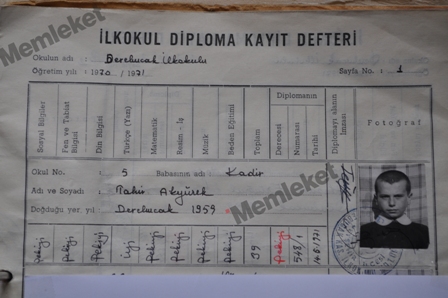 Memleket
İLKOKUL DİPLOMA KAYIT DEFTERİ
Okulun adı : Derebucak İlkokulu
Öğretim yılı : 1970 / 1971
Sayfa No. : 1
Sosyal Bilgiler
Fen ve Tabiat Bilgisi
Din Bilgisi
Türkçe (Yazı)
Matematik
Resim - İş
Müzik
Beden Eğitimi
Toplam
Diplomanın
Derecesi
Numarası
Tarihi
Diplomayı alanın İmzası
Fotoğraf
Memleket
Okul No. : 5 Babasının adı : Kadir
Adı ve Soyadı : Tahir Akyürek
Doğduğu yer. yıl : Derebucak 1959
Memleket
Pekiyi Pekiyi Pekiyi İyi Pekiyi Pekiyi Pekiyi Pekiyi 39 Pekiyi 548/1